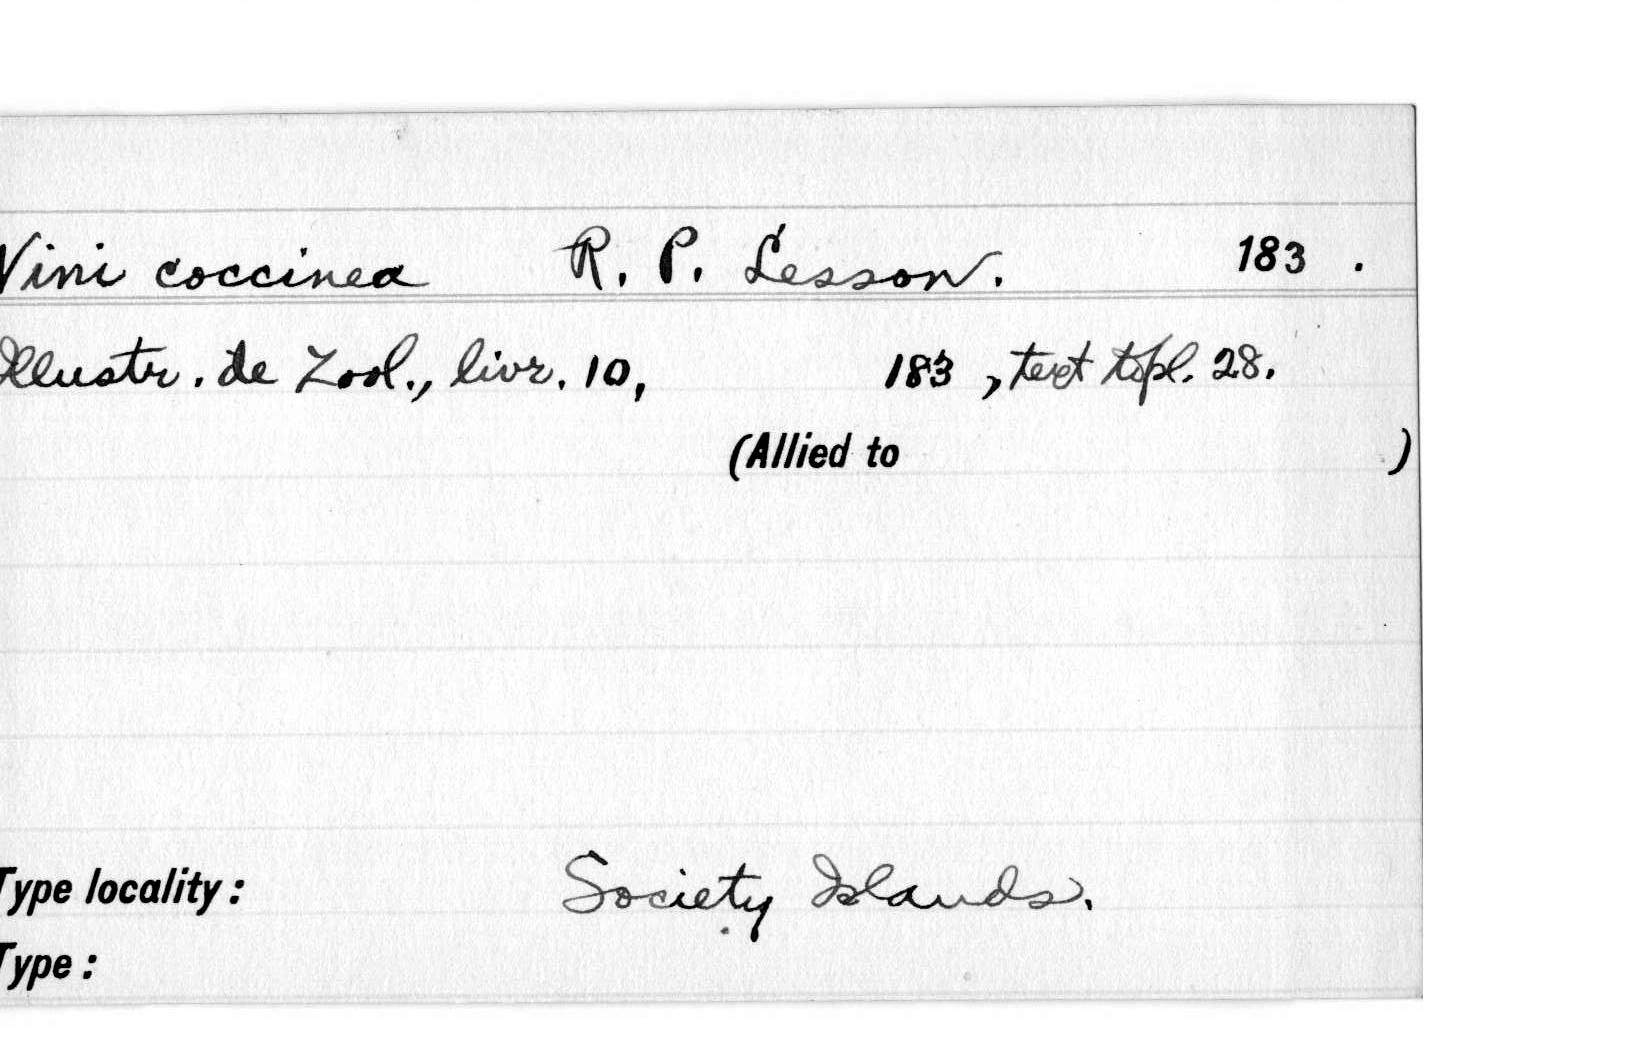 Vini coccinea R. P. Lesson. 183 .
Illustr. de Zool., livr. 10, 183 , text to pl. 28.
(Allied to )
Type locality: Society Islands.
Type: